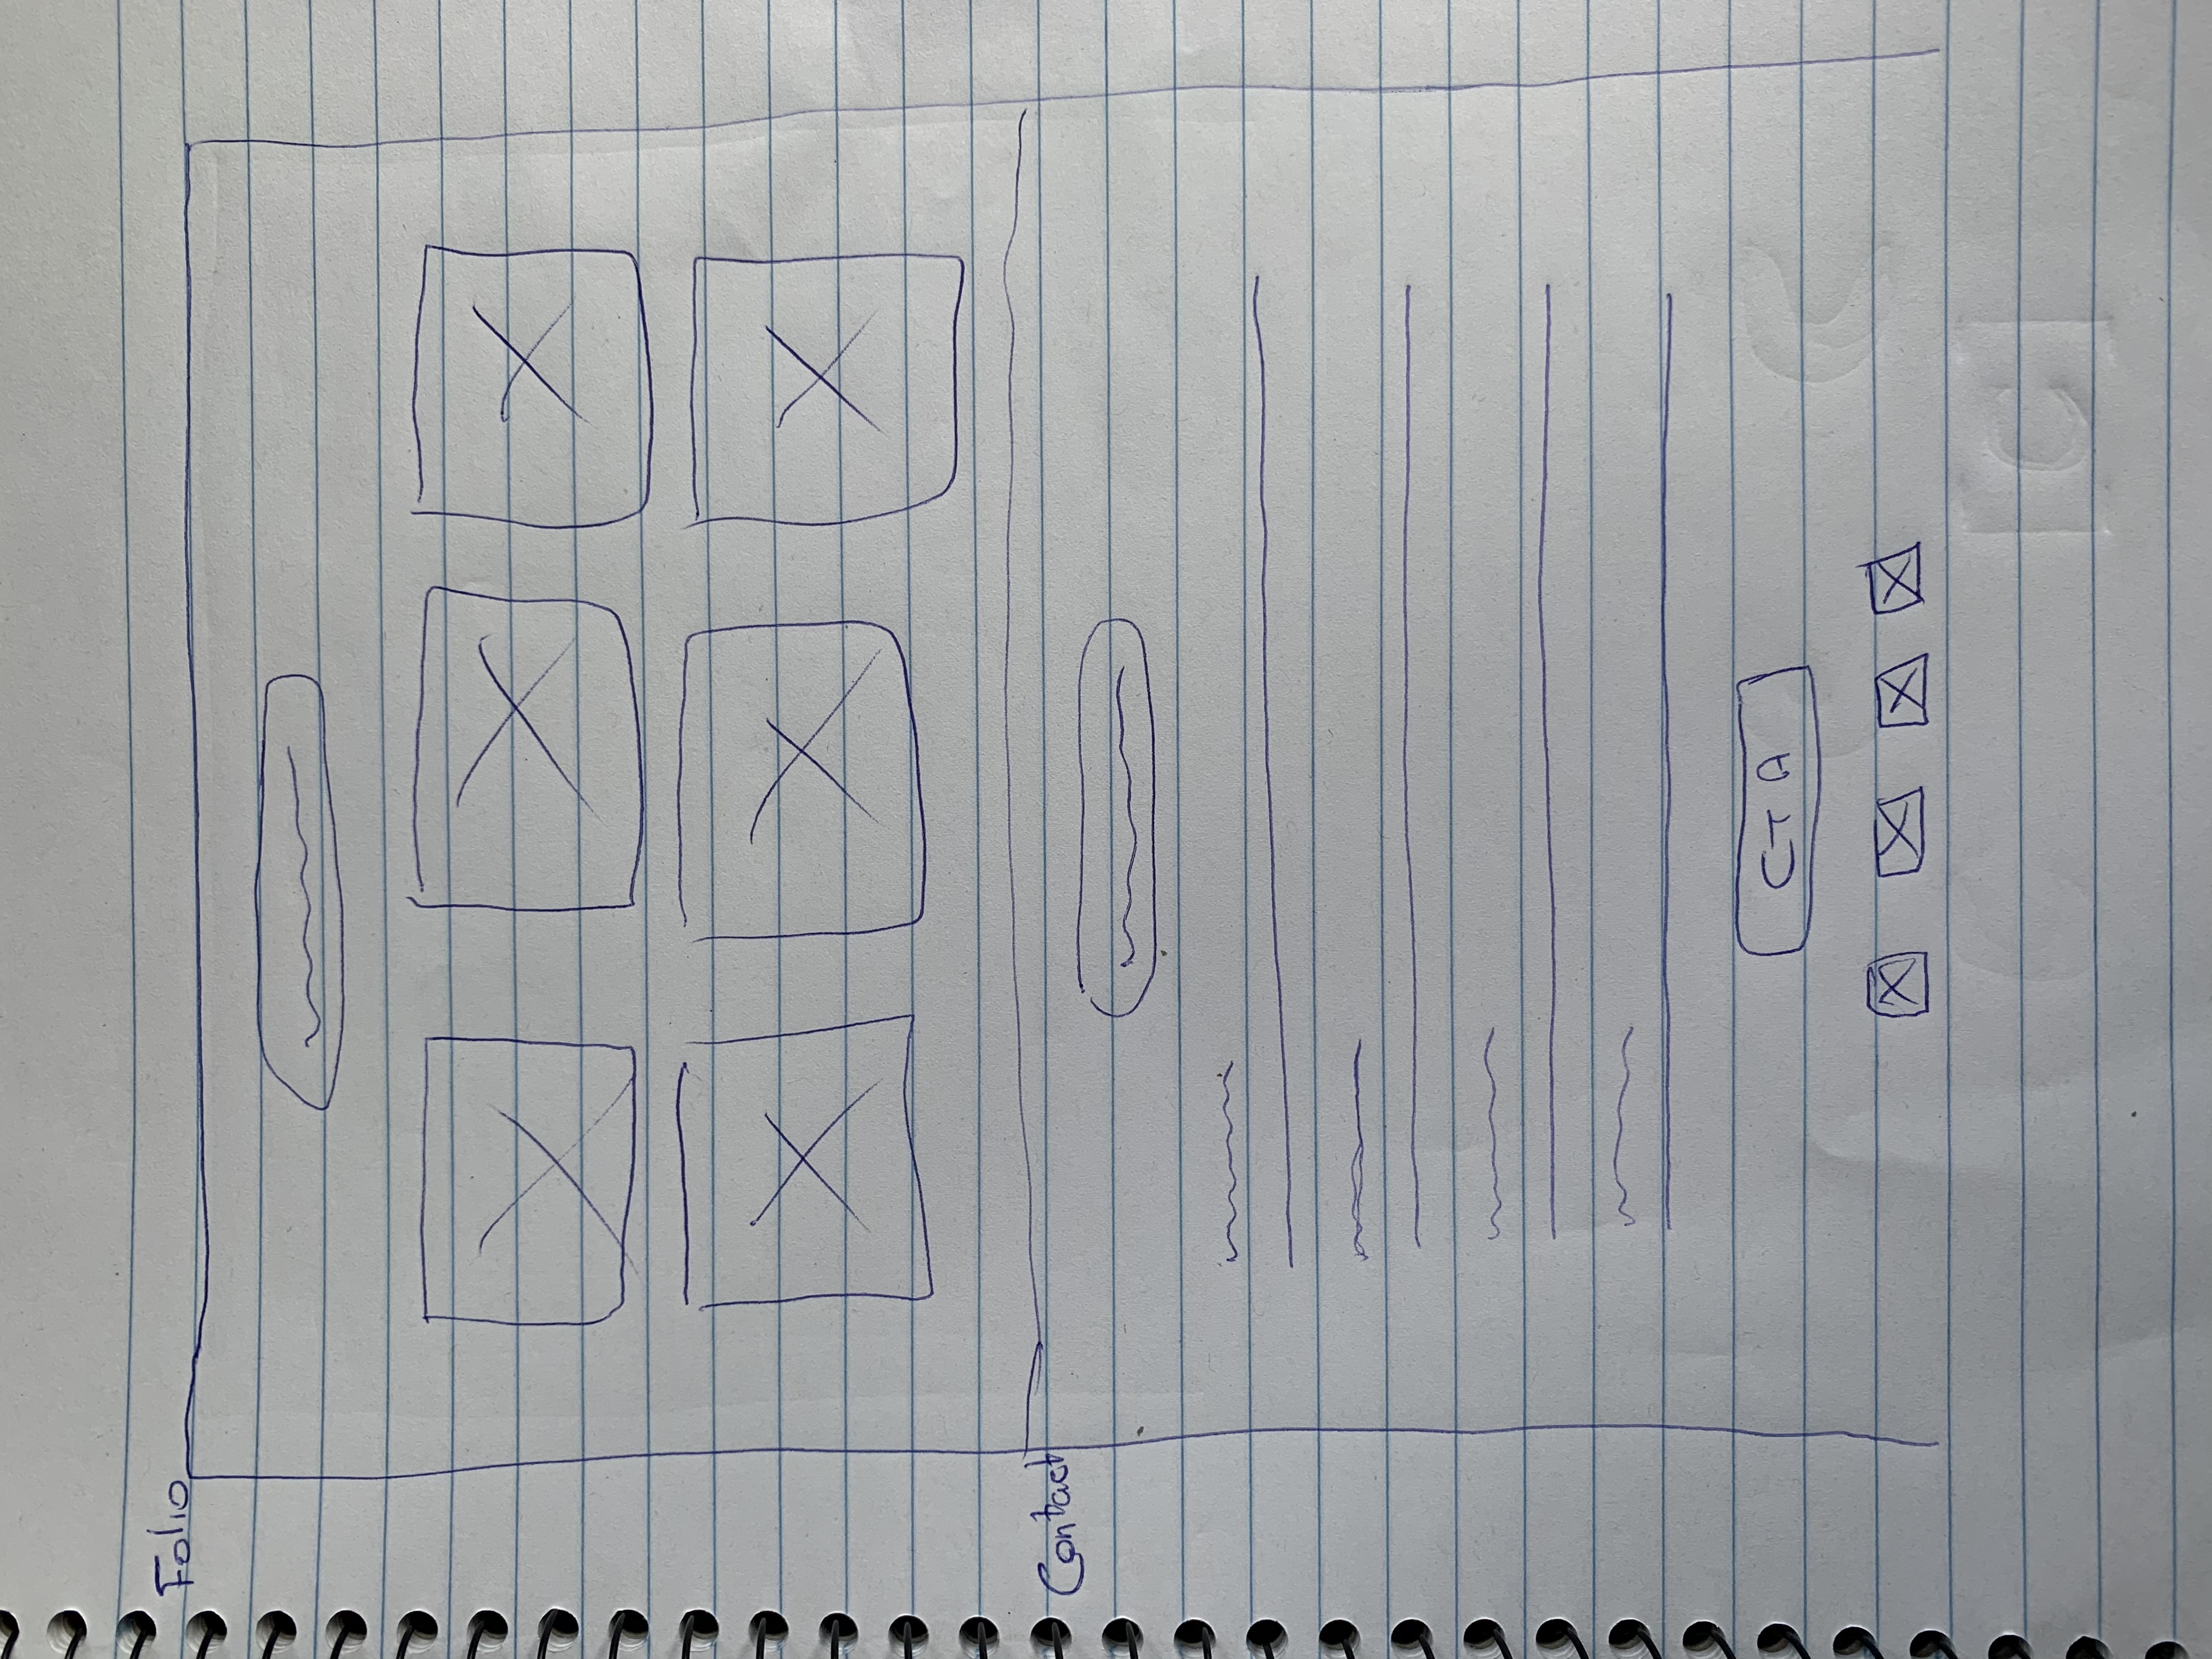 Folio
Contact
CTA